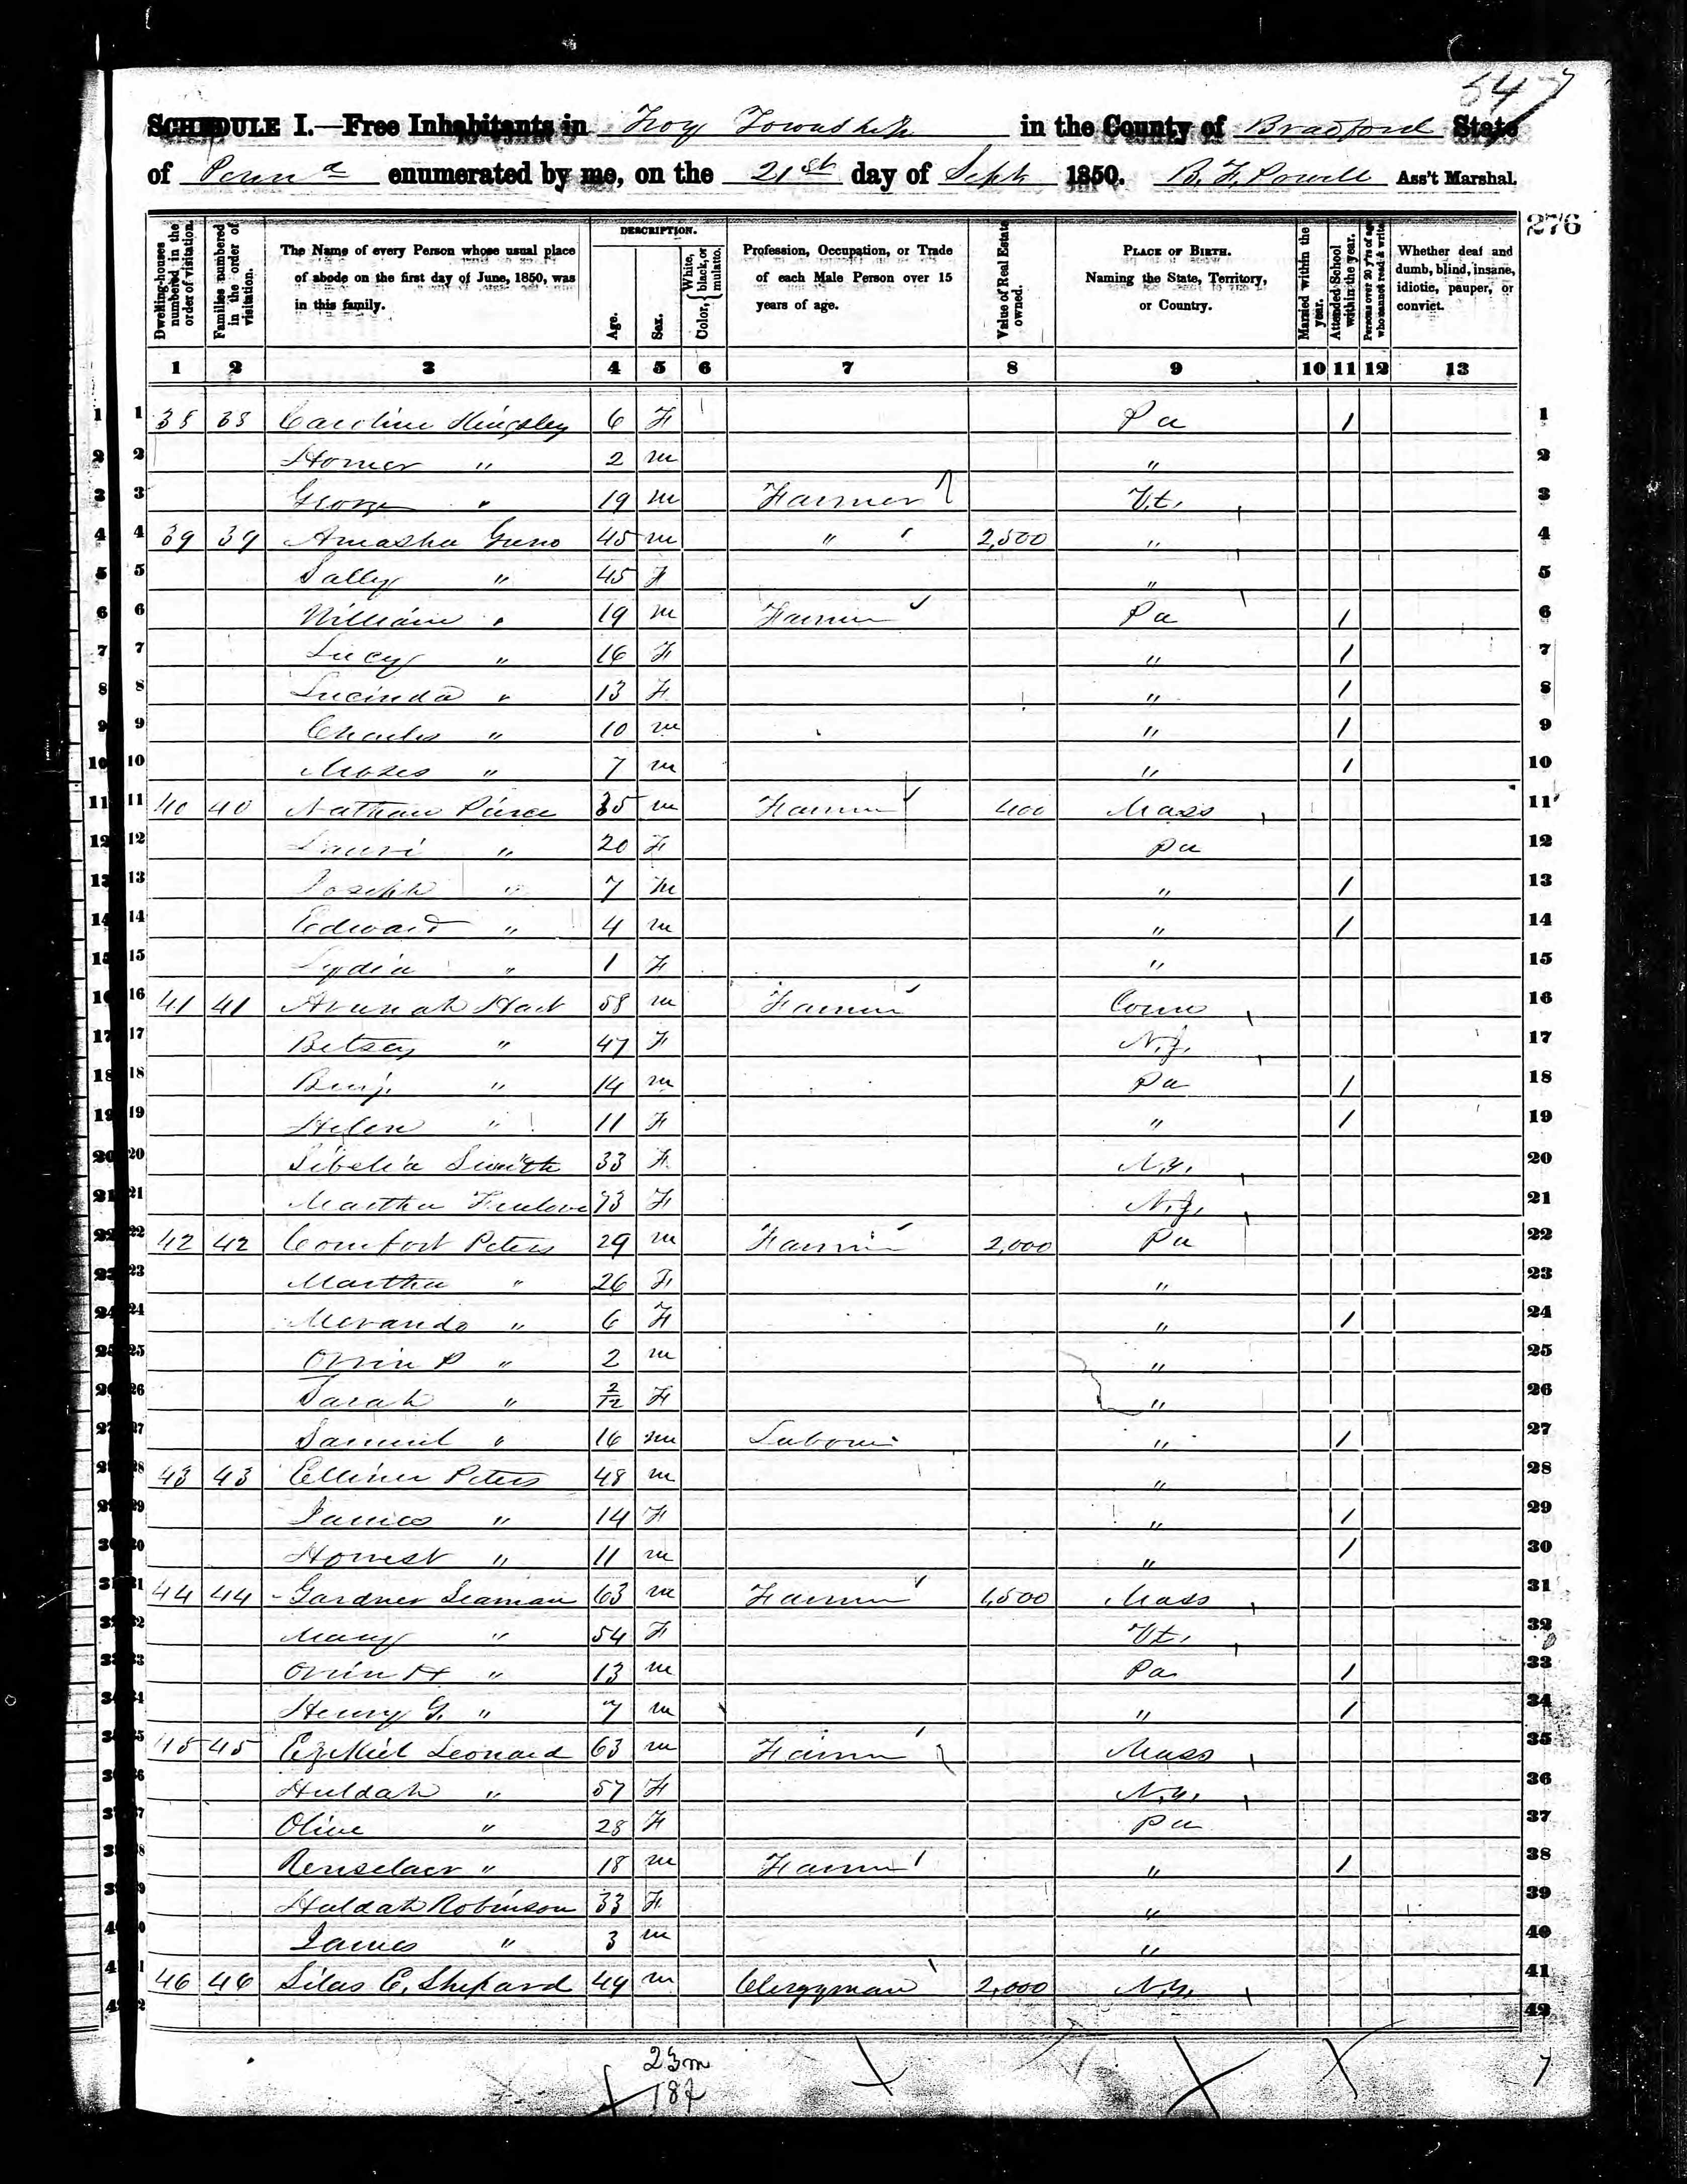 547
SCHEDULE I.—Free Inhabitants in Troy Township in the County of Bradford State
of Penna enumerated by me, on the 21st day of Sept 1850. B. F. Powell Ass't Marshal.
276
Dwelling-houses numbered in the order of visitation.
Families numbered in the order of visitation.
The Name of every Person whose usual place of abode on the first day of June, 1850, was in this family.
DESCRIPTION.
Age.
Sex.
Color, { White, black, or mulatto.
Profession, Occupation, or Trade of each Male Person over 15 years of age.
Value of Real Estate owned.
PLACE OF BIRTH. Naming the State, Territory, or Country.
Married within the year.
Attended School within the year.
Persons over 20 y'rs of age who cannot read & write.
Whether deaf and dumb, blind, insane, idiotic, pauper, or convict.
1 2 3 4 5 6 7 8 9 10 11 12 13
1 1 38 38 Caroline Kingsley 6 F Pa / 1
2 2 Homer " 2 m " 2
3 3 George " 19 m Farmer Vt. 3
4 4 39 39 Amasha 45 m " 2,500 " 4
5 5 Sally " 45 F " 5
6 6 William " 19 m Farmer Pa / 6
7 7 Lucy " 16 F " / 7
8 8 Lucinda " 13 F " / 8
9 9 Charles " 10 m " / 9
10 10 Moses " 7 m " / 10
11 11 40 40 Nathan Pierce 35 m Farmer 400 Mass 11
12 12 " 20 F Pa 12
13 13 Joseph " 7 m " / 13
14 14 Edward " 4 m " / 14
15 15 Lydia " 1 F " 15
16 16 41 41 Arunah Hart 58 m Farmer Conn 16
17 17 Betsey " 47 F N.J. 17
18 18 Benj. " 14 m Pa / 18
19 19 Helen " 11 F " / 19
20 20 Sibelia Smith 33 F N.Y. 20
21 21 Martha 73 F N.J. 21
22 22 42 42 Comfort Peters 29 m Farmer 2,000 Pa 22
23 23 Martha " 26 F " 23
24 24 Meranda " 6 F " / 24
25 25 Orrin P " 2 m " 25
26 26 Sarah " 2/12 F " 26
27 27 Samuel " 16 m Laborer " / 27
28 28 43 43 Elliner Peters 48 m " 28
29 29 " 14 F " / 29
30 30 " 11 m " / 30
31 31 44 44 Gardner Seaman 63 m Farmer 1,500 Mass 31
32 32 Mary " 54 F Vt. 32
33 33 Orrin H " 13 m Pa / 33
34 34 Henry G. " 7 m " / 34
35 35 45 45 Ezekiel Leonard 63 m Farmer Mass 35
36 36 Huldah " 57 F N.Y. 36
37 37 Olive " 28 F Pa 37
38 38 Renselaer " 18 m Farmer " / 38
39 39 Huldah Robinson 33 F " 39
40 40 James " 3 m " 40
41 41 46 46 Silas E. Shepard 49 m Clergyman 2,000 N.Y. 41
42 42 42
23m
18f
7